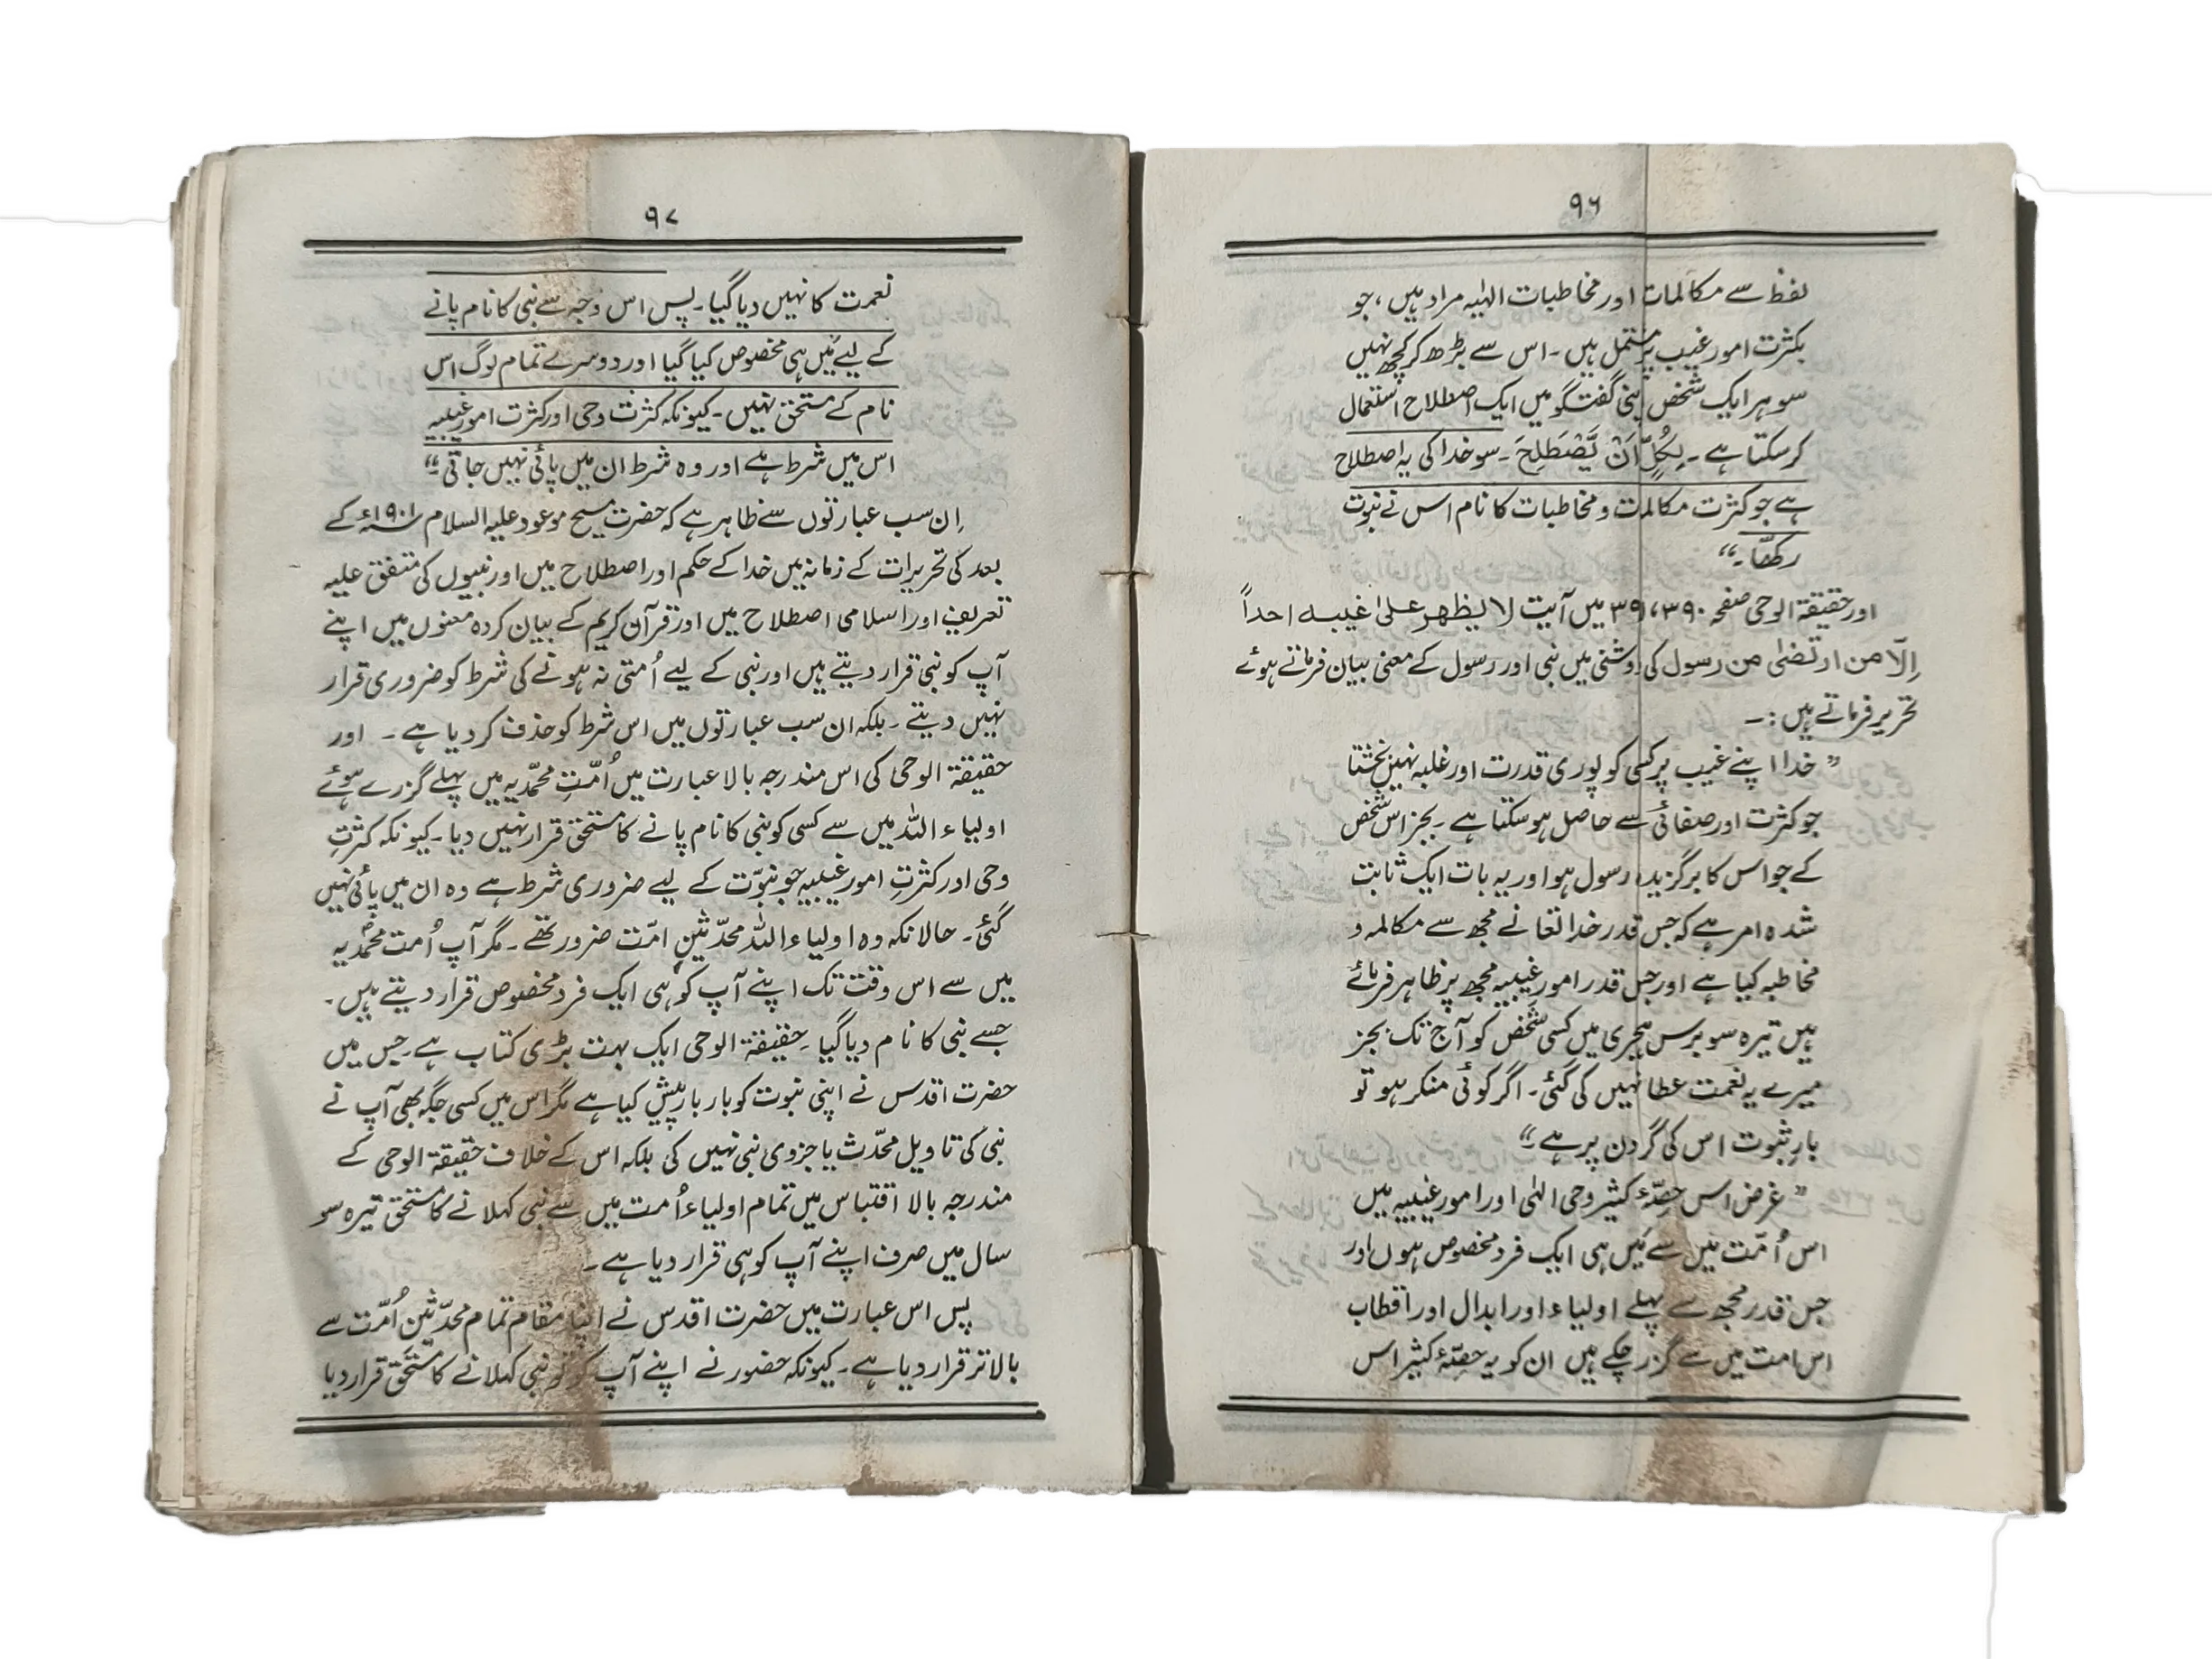 ۹۶
لفظ سے مکالمات اور مخاطبات الٰہیہ مراد ہیں، جو
بکثرت امور غیب پر مشتمل ہیں۔ اس سے بڑھ کر کچھ نہیں
سو ہر ایک شخص اپنی گفتگو میں ایک اصطلاح استعمال
کر سکتا ہے۔ لِکُلٍّ اَنْ یَّصْطَلِحَ۔ سو خدا کی یہ اصطلاح
ہے جو کثرت مکالمات و مخاطبات کا نام اس نے نبوت
رکھا۔“
اور حقیقۃ الوحی صفحہ ۳۹۰، ۳۹۱ میں آیت لا یظهر علیٰ غیبہ احداً
اِلّا من ارتضیٰ من رسول کی روشنی میں نبی اور رسول کے معنی بیان فرماتے ہوئے
تحریر فرماتے ہیں:۔
”خدا اپنے غیب پر کسی کو پوری قدرت اور غلبہ نہیں بخشتا
جو کثرت اور صفائی سے حاصل ہو سکتا ہے۔ بجز اس شخص
کے جو اس کا برگزیدہ رسول ہو اور یہ بات ایک ثابت
شدہ امر ہے کہ جس قدر خدا تعالےٰ نے مجھ سے مکالمہ و
مخاطبہ کیا ہے اور جس قدر امور غیبیہ مجھ پر ظاہر فرمائے
ہیں تیرہ سو برس ہجری میں کسی شخص کو آج تک بجز
میرے یہ نعمت عطا نہیں کی گئی۔ اگر کوئی منکر ہو تو
بارِ ثبوت اس کی گردن پر ہے۔“
”غرض اس حصّۂ کثیر وحی الٰہی اور امور غیبیہ میں
اس اُمّت میں سے مَیں ہی ایک فرد مخصوص ہوں اور
جس قدر مجھ سے پہلے اولیاء اور ابدال اور اقطاب
اس امت میں سے گزر چکے ہیں ان کو یہ حصّۂ کثیر اس
۹۷
نعمت کا نہیں دیا گیا۔ پس اس وجہ سے نبی کا نام پانے
کے لیے مَیں ہی مخصوص کیا گیا اور دوسرے تمام لوگ اس
نام کے مستحق نہیں۔ کیونکہ کثرت وحی اور کثرت امور غیبیہ
اس میں شرط ہے اور وہ شرط ان میں پائی نہیں جاتی۔“
اِن سب عبارتوں سے ظاہر ہے کہ حضرت مسیح موعود علیہ السلام ۱۹۰۱ء کے
بعد کی تحریرات کے زمانہ میں خدا کے حکم اور اصطلاح میں اور نبیوں کی متفق علیہ
تعریف اور اسلامی اصطلاح میں اور قرآن کریم کے بیان کردہ معنوں میں اپنے
آپ کو نبی قرار دیتے ہیں اور نبی کے لیے اُمتی نہ ہونے کی شرط کو ضروری قرار
نہیں دیتے۔ بلکہ ان سب عبارتوں میں اس شرط کو حذف کر دیا ہے۔ اور
حقیقۃ الوحی کی اس مندرجہ بالا عبارت میں اُمّتِ محمّدیہ میں پہلے گزرے ہوئے
اولیاء اللہ میں سے کسی کو نبی کا نام پانے کا مستحق قرار نہیں دیا۔ کیونکہ کثرتِ
وحی اور کثرتِ امور غیبیہ جو نبوّت کے لیے ضروری شرط ہے وہ ان میں پائی نہیں
گئی۔ حالانکہ وہ اولیاء اللہ محدّثینِ امّت ضرور تھے۔ مگر آپ اُمت محمدؐیہ
میں سے اس وقت تک اپنے آپ کو ہی ایک فرد مخصوص قرار دیتے ہیں۔
جسے نبی کا نام دیا گیا۔ حقیقۃ الوحی ایک بہت بڑی کتاب ہے۔ جس میں
حضرت اقدس نے اپنی نبوت کو بار بار پیش کیا ہے مگر اس میں کسی جگہ بھی آپ نے
نبی کی تاویل محدّث یا جزوی نبی نہیں کی بلکہ اس کے خلاف حقیقۃ الوحی کے
مندرجہ بالا اقتباس میں تمام اولیاء اُمت میں سے نبی کہلانے کا مستحق تیرہ سو
سال میں صرف اپنے آپ کو ہی قرار دیا ہے۔
پس اس عبارت میں حضرت اقدس نے اپنا مقام تمام محدّثین اُمّت سے
بالاتر قرار دیا ہے۔ کیونکہ حضور نے اپنے آپ کو تو نبی کہلانے کا مستحق قرار دیا